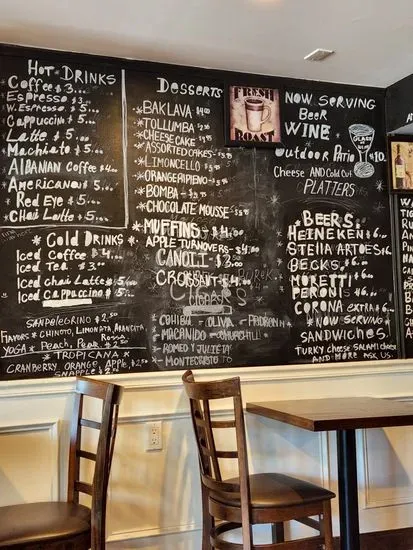 Hot Drinks
Coffee $3...
Espresso $3...
Cappuccino $5...
Latte $5...
Machiato $5...
Albanian Coffee $4...
Americano $5...
Red Eye $5...
Chai Latte $5...
Cold Drinks
Iced Coffee $4...
Iced Tea $3...
Iced Chai Latte $5...
Iced Cappuccino $5...
SanPelegrino $2.50
Flavors: Chinoto, Limonata, Aranciata,
Rossa
Yoga Peach, Pear $2.50
Tropicana
Cranberry Orange Apple $2.50
Snapple $2
Desserts
Baklava
Tollumba
Cheese Cake
Assorted Cakes
Limoncello
Bomba
Chocolate Mousse
Muffins $4...
Apple Turnovers $4...
Canoli $3...
Croissant $4...
Cigars
Cohiba Oliva Padron
Macanudo
Romeo y Julieta
Montecristo
Fresh
Roast
Now Serving
Beer
Wine
Glass
$10.
Outdoor Patio
Cheese and Cold Cut
Platters
Beers
Heineken $6...
Stella Artois $6...
Becks $6...
Moretti $6...
Peroni $6...
Corona Extra $6...
Now Serving
Sandwiches
Turky Cheese Salami Cheese
and more ask us